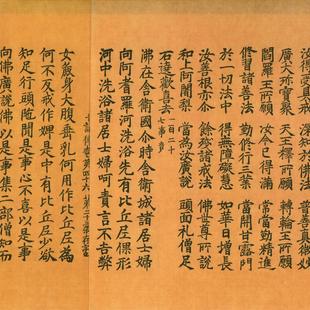 汝得具真戒
深知於佛法
當具真微妙
廣大珎寶聚
天王釋所願
轉輪王所願
閻羅王所願
汝今已得滿
常當勤精進
修習諸善法
勤修行三業
當開甘露門
於一切法中
得無障礙慧
如華日增長
汝善根亦介
餘殘諸戒法
佛世尊所說
和上阿闍梨
當為汝廣說
頭面礼僧足
石遶歡喜去
一百二十
七事竟
沸在舍衛國介時舍衛城諸居士婦
向阿耆羅河洗浴先有比丘尼倮形
河中洗浴諸居士婦呵責言不吉弊
女麁身大腹垂乳何用作比丘尼為
何不反戒作婢是中有比丘尼少欲
知足行頭陁聞是事心不喜以是事
向佛廣說佛以是事集二部僧知而